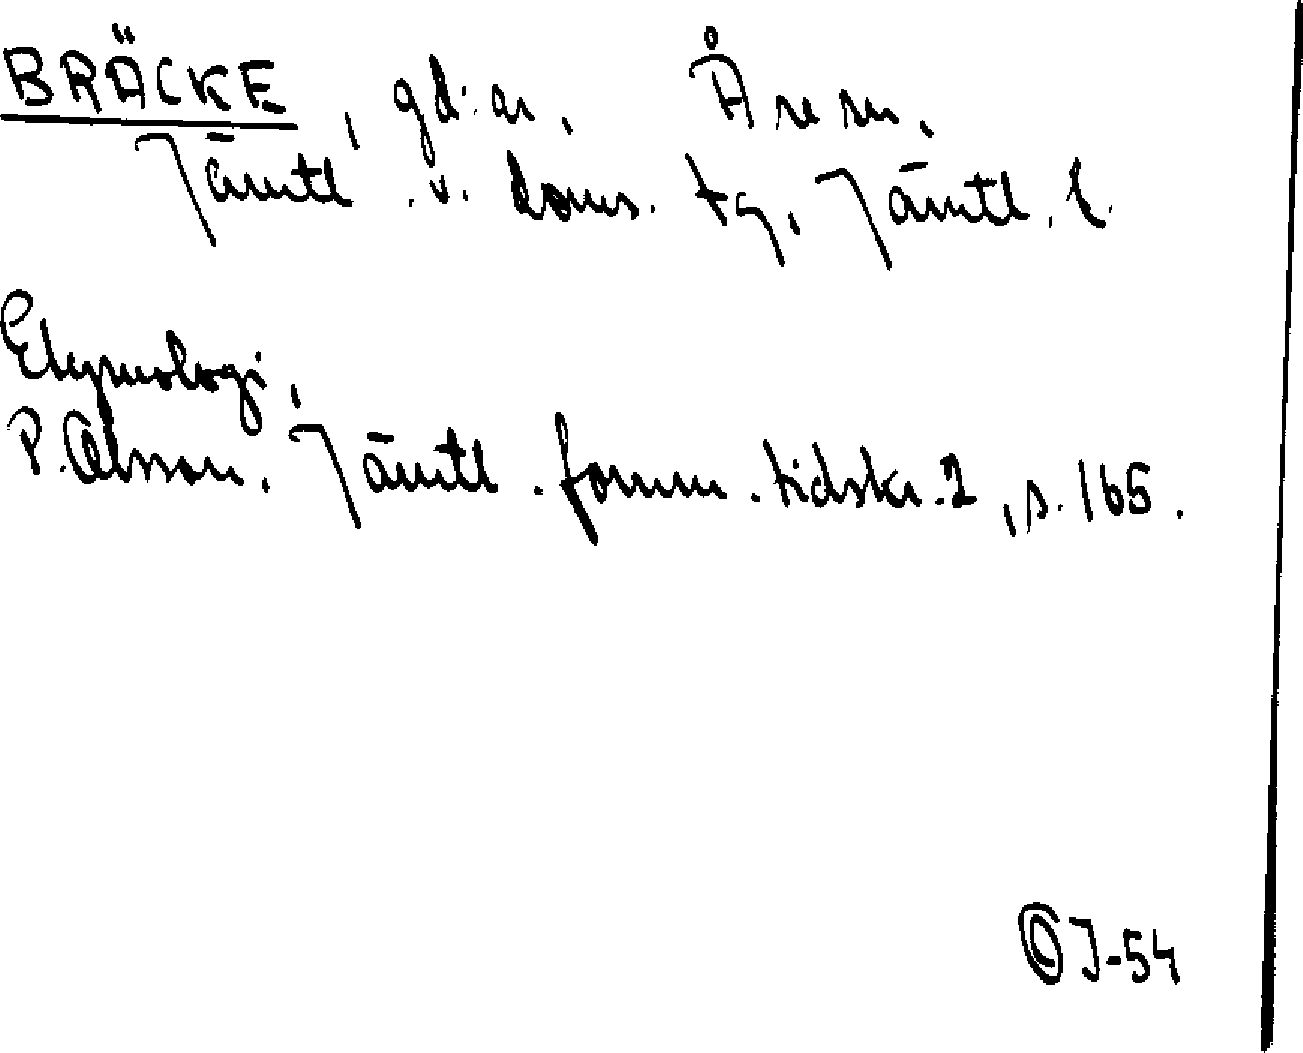 BRÄCKE, gd:ar, Åre sn,
Jämtl. v. doms. tg, Jämtl. l.
Etymologi,
P. Olsson, Jämtl. fornm. tidskr. 2, s. 165.
OJ-54